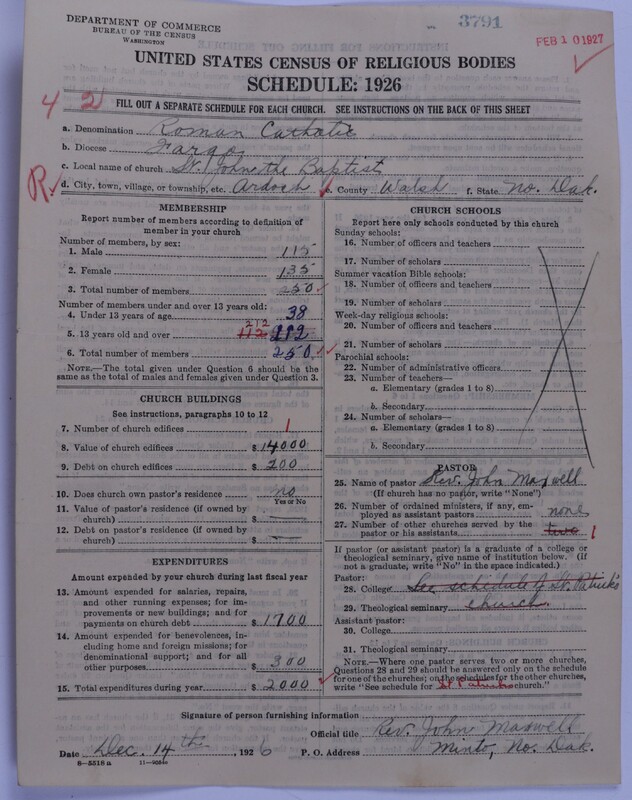 DEPARTMENT OF COMMERCE
BUREAU OF THE CENSUS
WASHINGTON
3791
FEB 10 1927
UNITED STATES CENSUS OF RELIGIOUS BODIES
SCHEDULE: 1926
4 2
FILL OUT A SEPARATE SCHEDULE FOR EACH CHURCH. SEE INSTRUCTIONS ON THE BACK OF THIS SHEET
a. Denomination Roman Catholic
b. Diocese Fargo
c. Local name of church St. John the Baptist
R. d. City, town, village, or township, etc. Ardoch e. County Walsh f. State No. Dak.
MEMBERSHIP
Report number of members according to definition of
member in your church
Number of members, by sex:
1. Male 115
2. Female 135
3. Total number of members 250
Number of members under and over 13 years old:
4. Under 13 years of age 38
5. 13 years old and over 112 212 212
6. Total number of members 250
NOTE.—The total given under Question 6 should be the
same as the total of males and females given under Question 3.
CHURCH BUILDINGS
See instructions, paragraphs 10 to 12
7. Number of church edifices 1
8. Value of church edifices $ 14000
9. Debt on church edifices $ 200
10. Does church own pastor's residence no
Yes or No
11. Value of pastor's residence (if owned by
church) $ —
12. Debt on pastor's residence (if owned by
church) $ —
EXPENDITURES
Amount expended by your church during last fiscal year
13. Amount expended for salaries, repairs,
and other running expenses; for im-
provements or new buildings; and for
payments on church debt $ 1700
14. Amount expended for benevolences, in-
cluding home and foreign missions; for
denominational support; and for all
other purposes $ 300
15. Total expenditures during year $ 2000
CHURCH SCHOOLS
Report here only schools conducted by this church
Sunday schools:
16. Number of officers and teachers
17. Number of scholars
Summer vacation Bible schools:
18. Number of officers and teachers
19. Number of scholars
Week-day religious schools:
20. Number of officers and teachers
21. Number of scholars
Parochial schools:
22. Number of administrative officers
23. Number of teachers—
a. Elementary (grades 1 to 8)
b. Secondary
24. Number of scholars—
a. Elementary (grades 1 to 8)
b. Secondary
PASTOR
25. Name of pastor Rev. John Maxwell
(If church has no pastor, write "None")
26. Number of ordained ministers, if any, em-
ployed as assistant pastors none
27. Number of other churches served by the
pastor or his assistants two 1
If pastor (or assistant pastor) is a graduate of a college or
theological seminary, give name of institution below. (If
not a graduate, write "No" in the space indicated.)
Pastor:
28. College See schedule of St. Patrick's
29. Theological seminary church.
Assistant pastor:
30. College
31. Theological seminary
NOTE.—Where one pastor serves two or more churches,
Questions 28 and 29 should be answered only on the schedule
for one of the churches; on the schedules for the other churches,
write "See schedule for St Patricks church."
Signature of person furnishing information
Official title Rev. John Maxwell
Date Dec. 14th, 1926 P. O. Address Minto, No. Dak.
8—5518 a